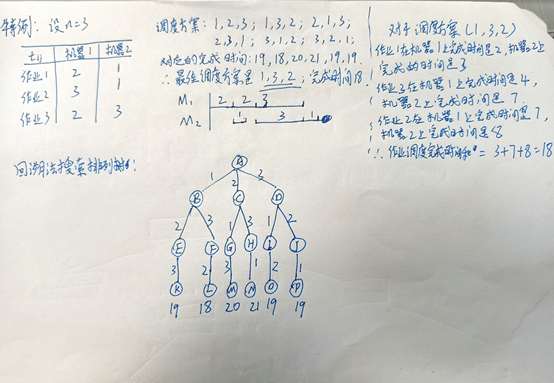 举例: 设n=3
tij 机器1 机器2
作业1 2 1
作业2 3 1
作业3 2 3
回溯法搜索排列树:
调度方案: 1,2,3; 1,3,2; 2,1,3;
2,3,1; 3,1,2; 3,2,1;
对应的完成时间: 19,18,20,21,19,19.
∴最佳调度方案是 1,3,2; 完成时间18
M₁ 2 2 3
M₂ 1 3 1
A
1 2 3
B C D
2 3 1 3 1 2
E F G H I J
3 2 3 1 2 1
K L M N O P
19 18 20 21 19 19
对于调度方案(1,3,2)
作业1在机器1上完成时间是2,机器2上
完成的时间是3
作业3在机器1上完成时间是4,
机器2上完成时间是7
作业2在机器1上完成时间是7,
机器2上完成时间是8
∴作业调度完成时间和=3+7+8=18